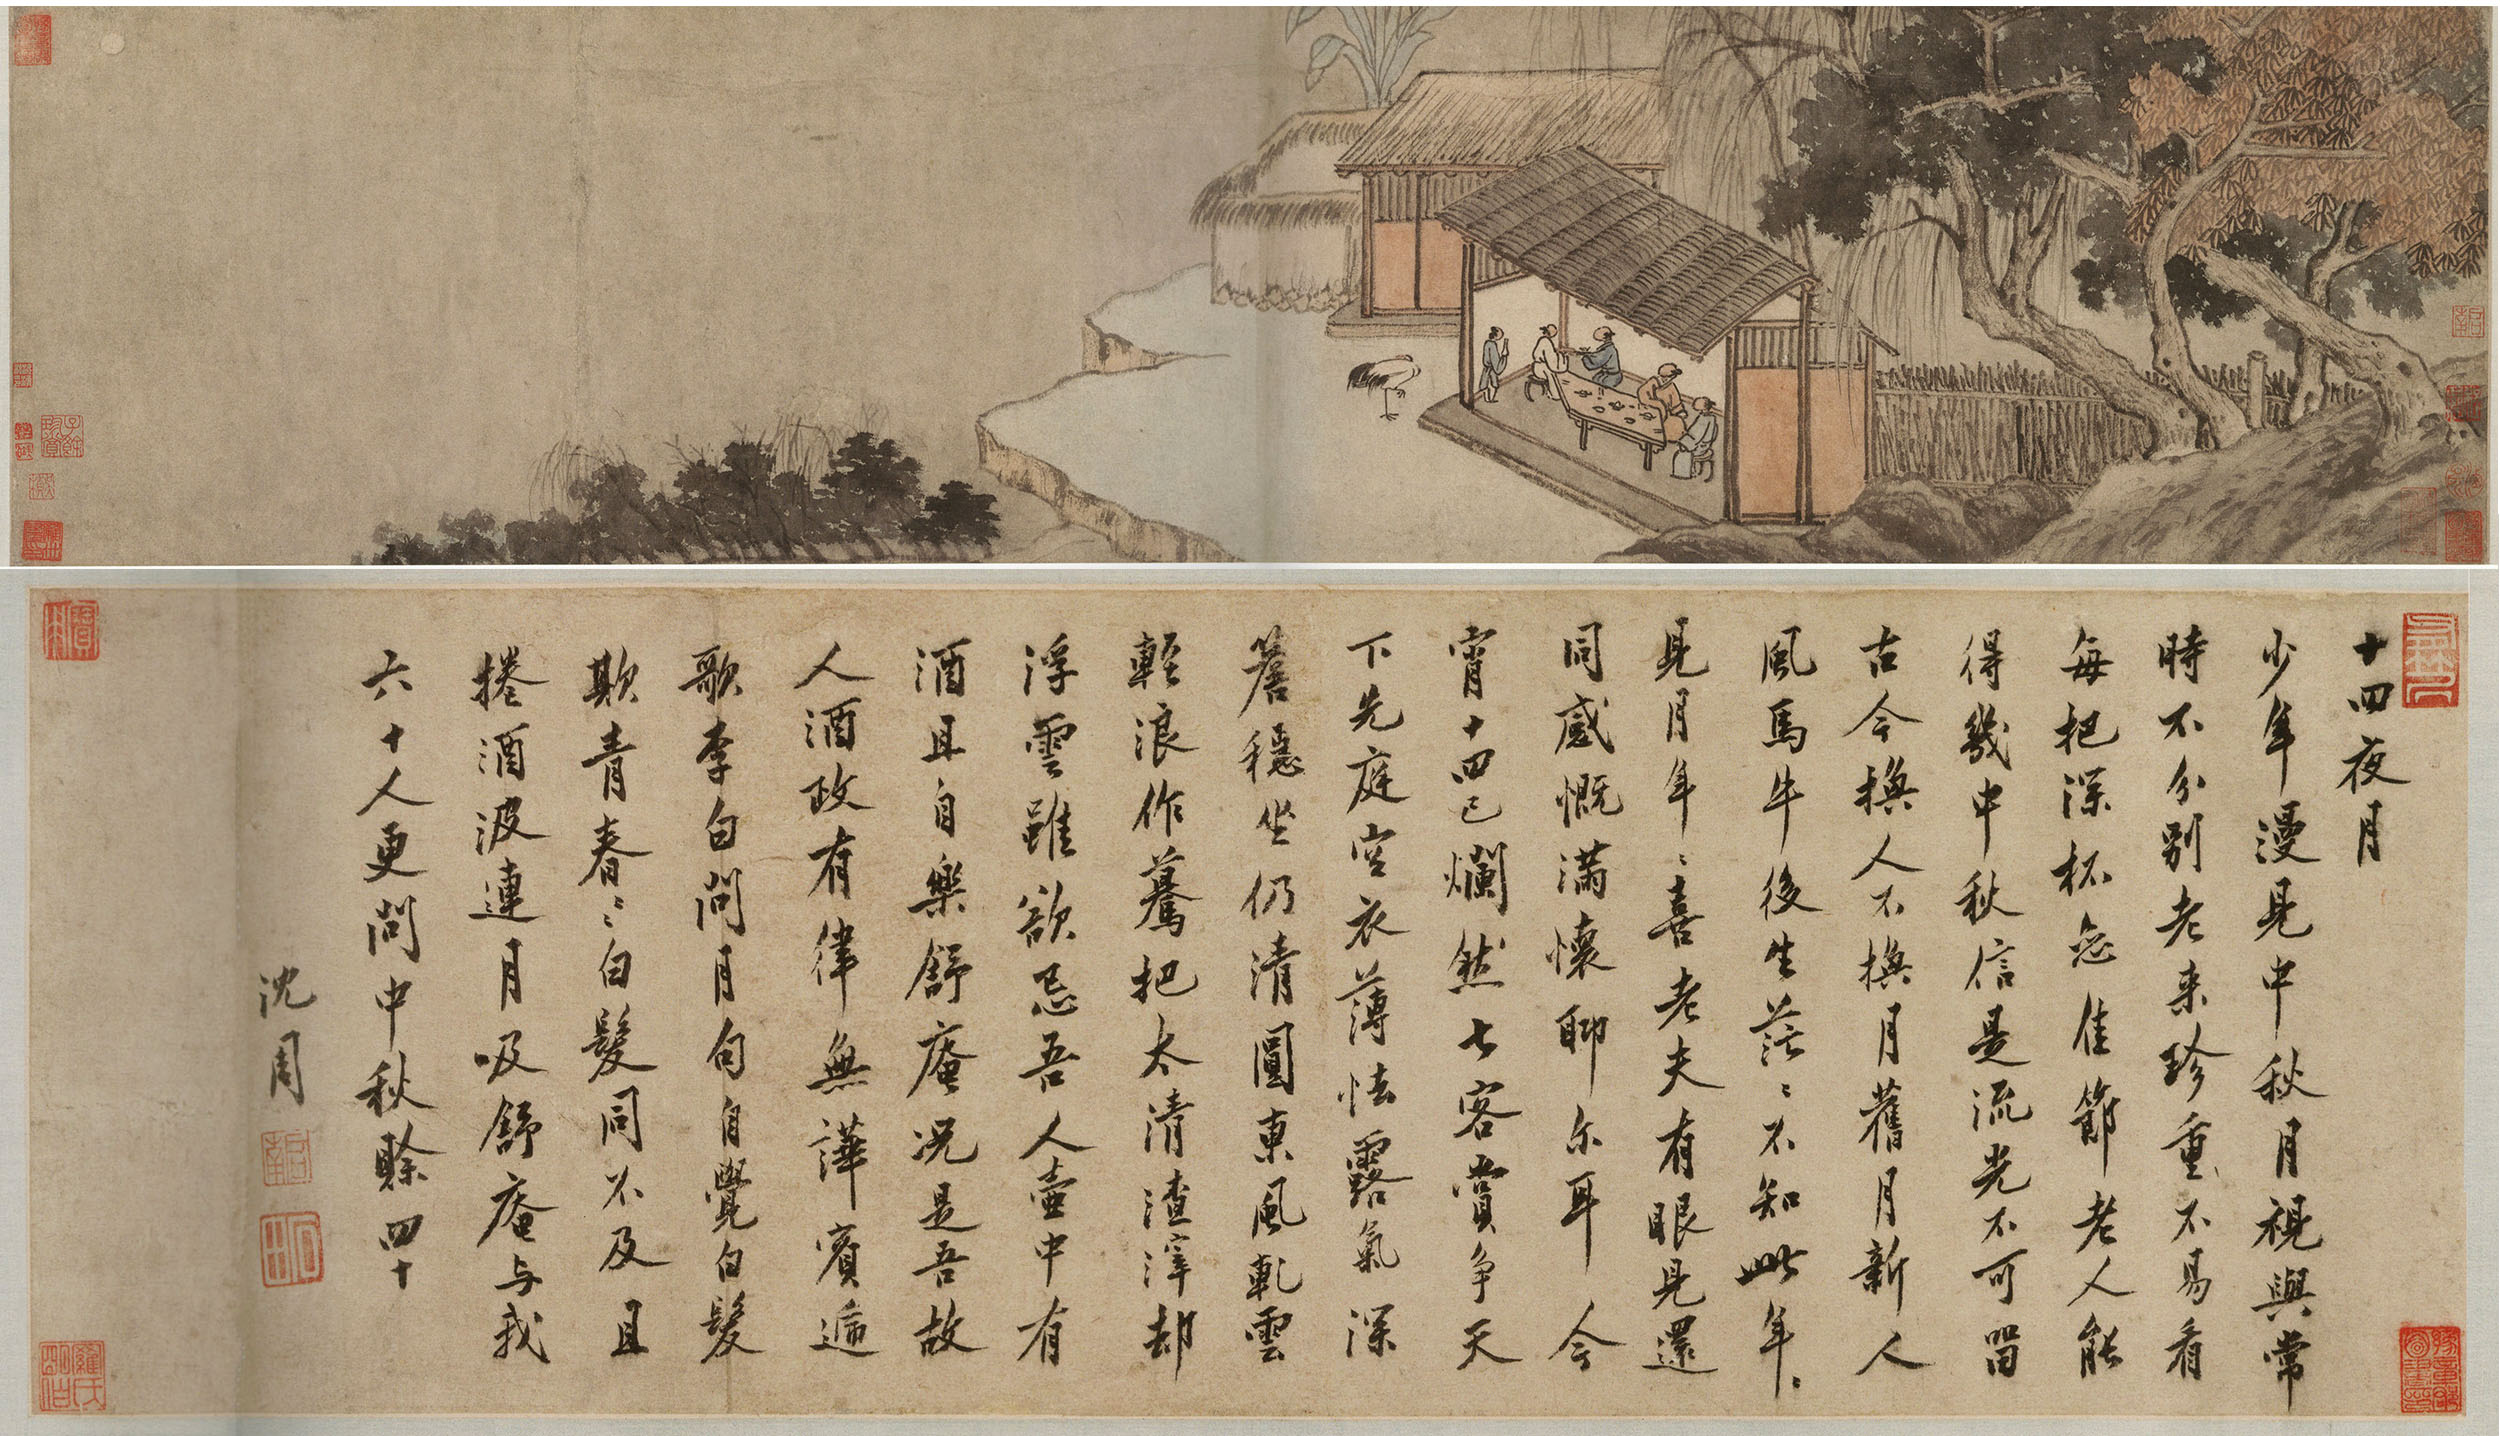 十四夜月
少年漫見中秋月視與常
時不分別老来珍重不易看
每把深杯忘佳節老人能
得幾中秋信是流光不可留
古今換人不換月舊月新人
風馬牛後生茫〻不知此年〻
見月年〻喜老夫有眼見還
同感慨滿懷聊尔耳今
宵十四已爛然七客賞争天
下先庭空衣薄怯露氣深
簷穩坐仍清圓東風軋雲
輕浪作驀把太清渣滓却
浮雲雖欲忌吾人壺中有
酒且自樂舒庵況是吾故
人酒政有律無譁賓逓
歌李白問月句自覺白髮
欺青春〻白髮同不及且
捲酒波連月吸舒庵与我
六十人更問中秋賖四十
沈周